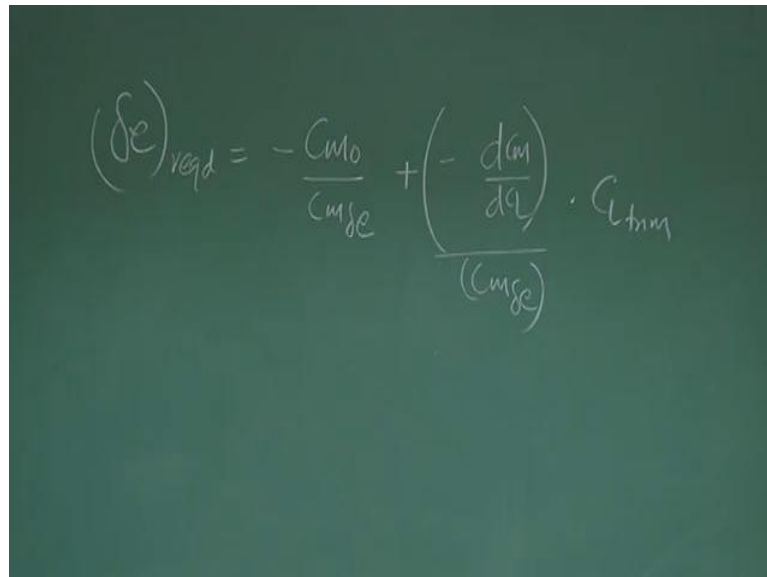 (δe)reqd = - Cmo/Cmδe + (- dCm/dCL)/(Cmδe) . CLtrim